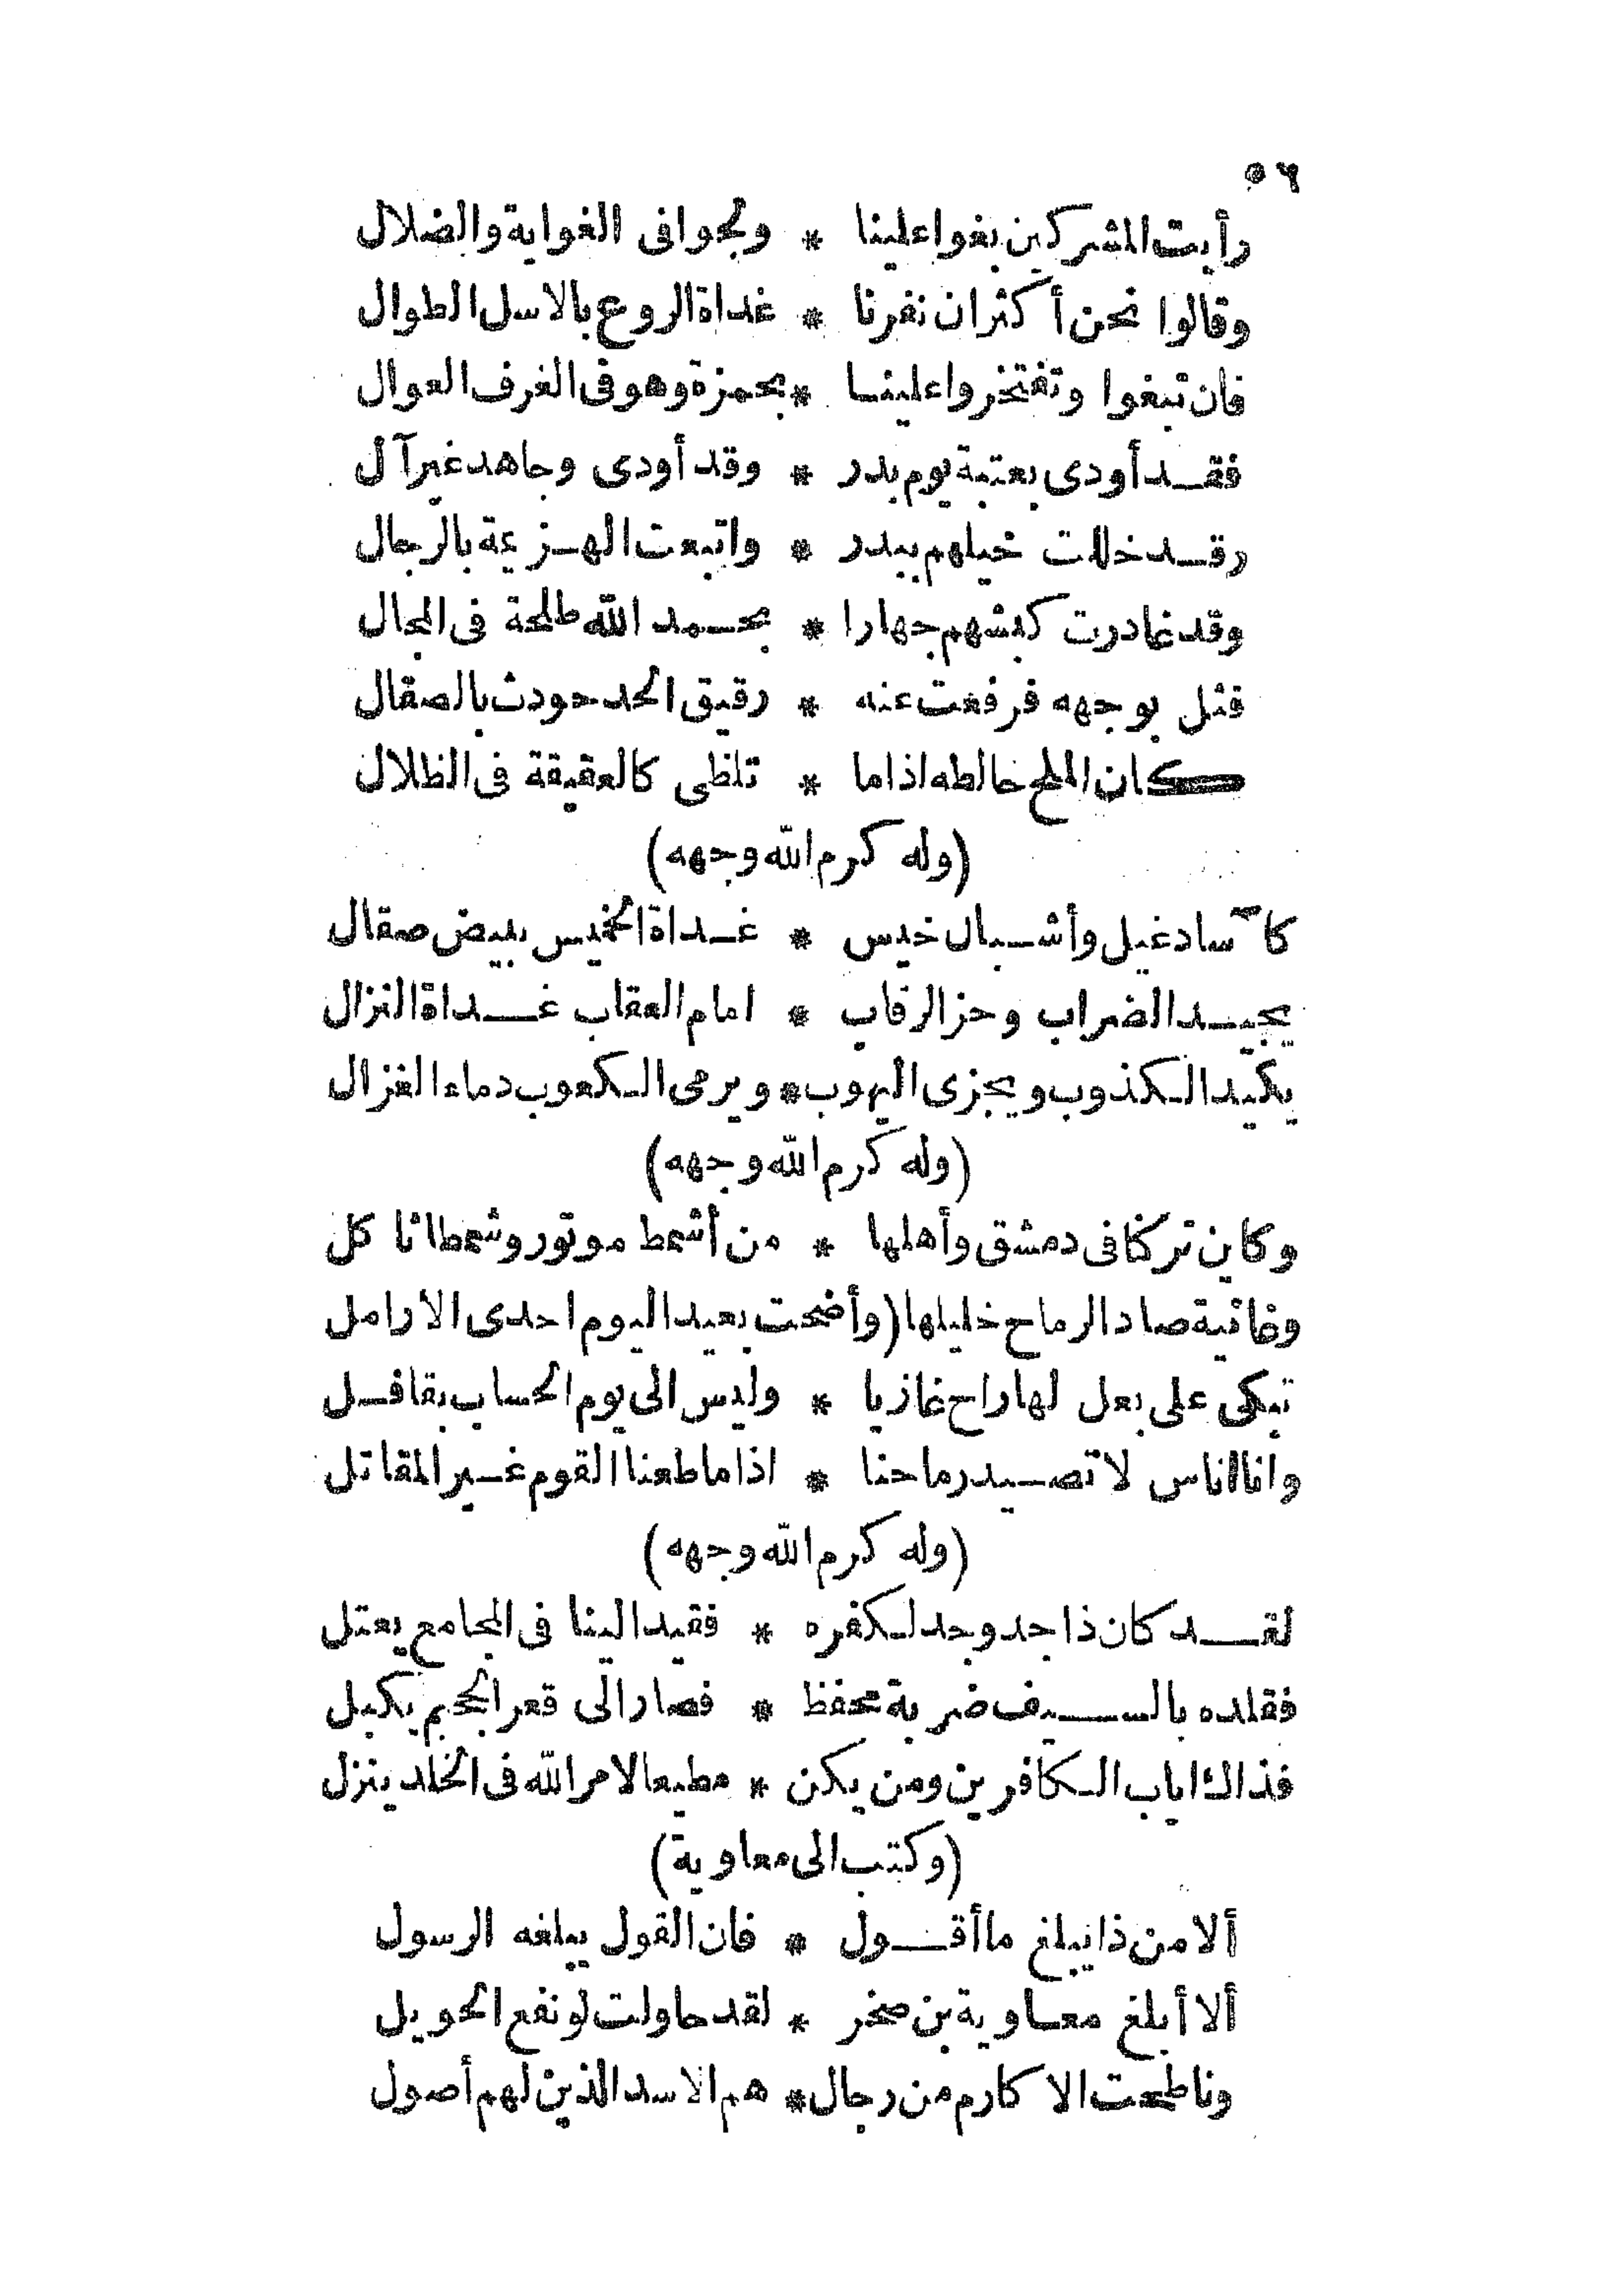 ٥٦
رأيت المشركين بغوا علينا * ولجوا فى الغواية والضلال
وقالوا نحن أكثر ان نفرنا * غداة الروع بالاسل الطوال
فان تبغوا وتفتخروا علينا * بحمزة وهو فى الغرف العوال
فقد أودى بعتبة يوم بدر * وقد أودى وجاهد غير آل
وقد خللت خيلهم ببدر * واتبعت الهزيمة بالرجال
وقد غادرت كبشهم جهارا * بحمد الله طلحة فى المجال
فتل بوجهه فرفعت عنه * رقيق الحد حودث بالصقال
كان الملح خالطه اذا ما * تلظى كالعقيقة فى الظلال
(وله كرم الله وجهه)
كآساد غيل وأشبال خيس * غداة الخيس ببيض صقال
يجيد الضراب وحز الرقاب * امام العقاب غداة النزال
يكيد الكذوب ويجزى الهيوب * ويرمى الكعوب دماء الغزال
(وله كرم الله وجهه)
وكاين تركنا فى دمشق وأهلها * من أشمط موتور وشمطا ثاكل
وغانية صاد الرماح خليلها (وأضحت بعيد اليوم احدى الارامل
تبكى على بعل لها راح غازيا * وليس الى يوم الحساب بقافل
وانا اناس لا تصيد رماحنا * اذا ما طعنا القوم غير المقاتل
(وله كرم الله وجهه)
لقد كان ذا جد وجد لكفره * فقيد الينا فى المجامع يعتل
فقلده بالسيف ضربة محفظ * فصار الى قعر الجحيم يكبل
فذاك اياب الكافرين ومن يكن * مطيعا لامر الله فى الخلد ينزل
(وكتب الى معاوية)
ألا من ذا يبلغ ما أقول * فان القول يبلغه الرسول
ألا أبلغ معاوية بن صخر * لقد حاولت لو نفع الحويل
وناطحت الاكارم من رجال * هم الاسد الذين لهم أصول